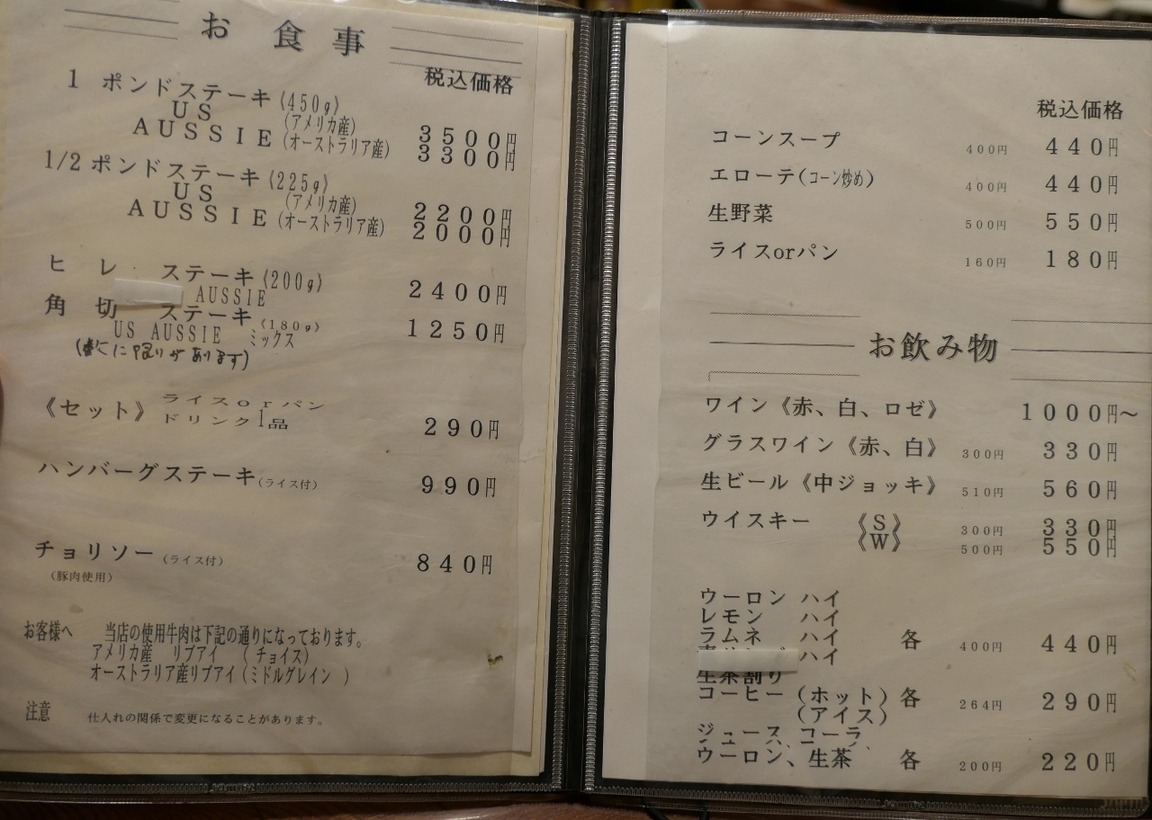 お食事
税込価格
1 ポンドステーキ(450g)
US (アメリカ産) 3500円
AUSSIE (オーストラリア産) 3300円
1/2 ポンドステーキ(225g)
US (アメリカ産) 2200円
AUSSIE (オーストラリア産) 2000円
ヒレ ステーキ(200g) 2400円
AUSSIE
角切 ステーキ(180g) 1250円
US AUSSIE ミックス
(数に限りがあります)
《セット》 ライスorパン
ドリンク1品 290円
ハンバーグステーキ(ライス付) 990円
チョリソー(ライス付) 840円
(豚肉使用)
お客様へ 当店の使用牛肉は下記の通りになっております。
アメリカ産 リブアイ (チョイス)
オーストラリア産リブアイ(ミドルグレイン )
注意 仕入れの関係で変更になることがあります。
税込価格
コーンスープ 400円 440円
エローテ(コーン炒め) 400円 440円
生野菜 500円 550円
ライスorパン 160円 180円
お飲み物
ワイン《赤、白、ロゼ》 1000円〜
グラスワイン《赤、白》 300円 330円
生ビール《中ジョッキ》 510円 560円
ウイスキー 《S》 300円 330円
《W》 500円 550円
ウーロン ハイ
レモン ハイ
ラムネ ハイ 各 400円 440円
ハイ
生茶割り
コーヒー(ホット) 各 264円 290円
(アイス)
ジュース、コーラ、
ウーロン、生茶 各 200円 220円